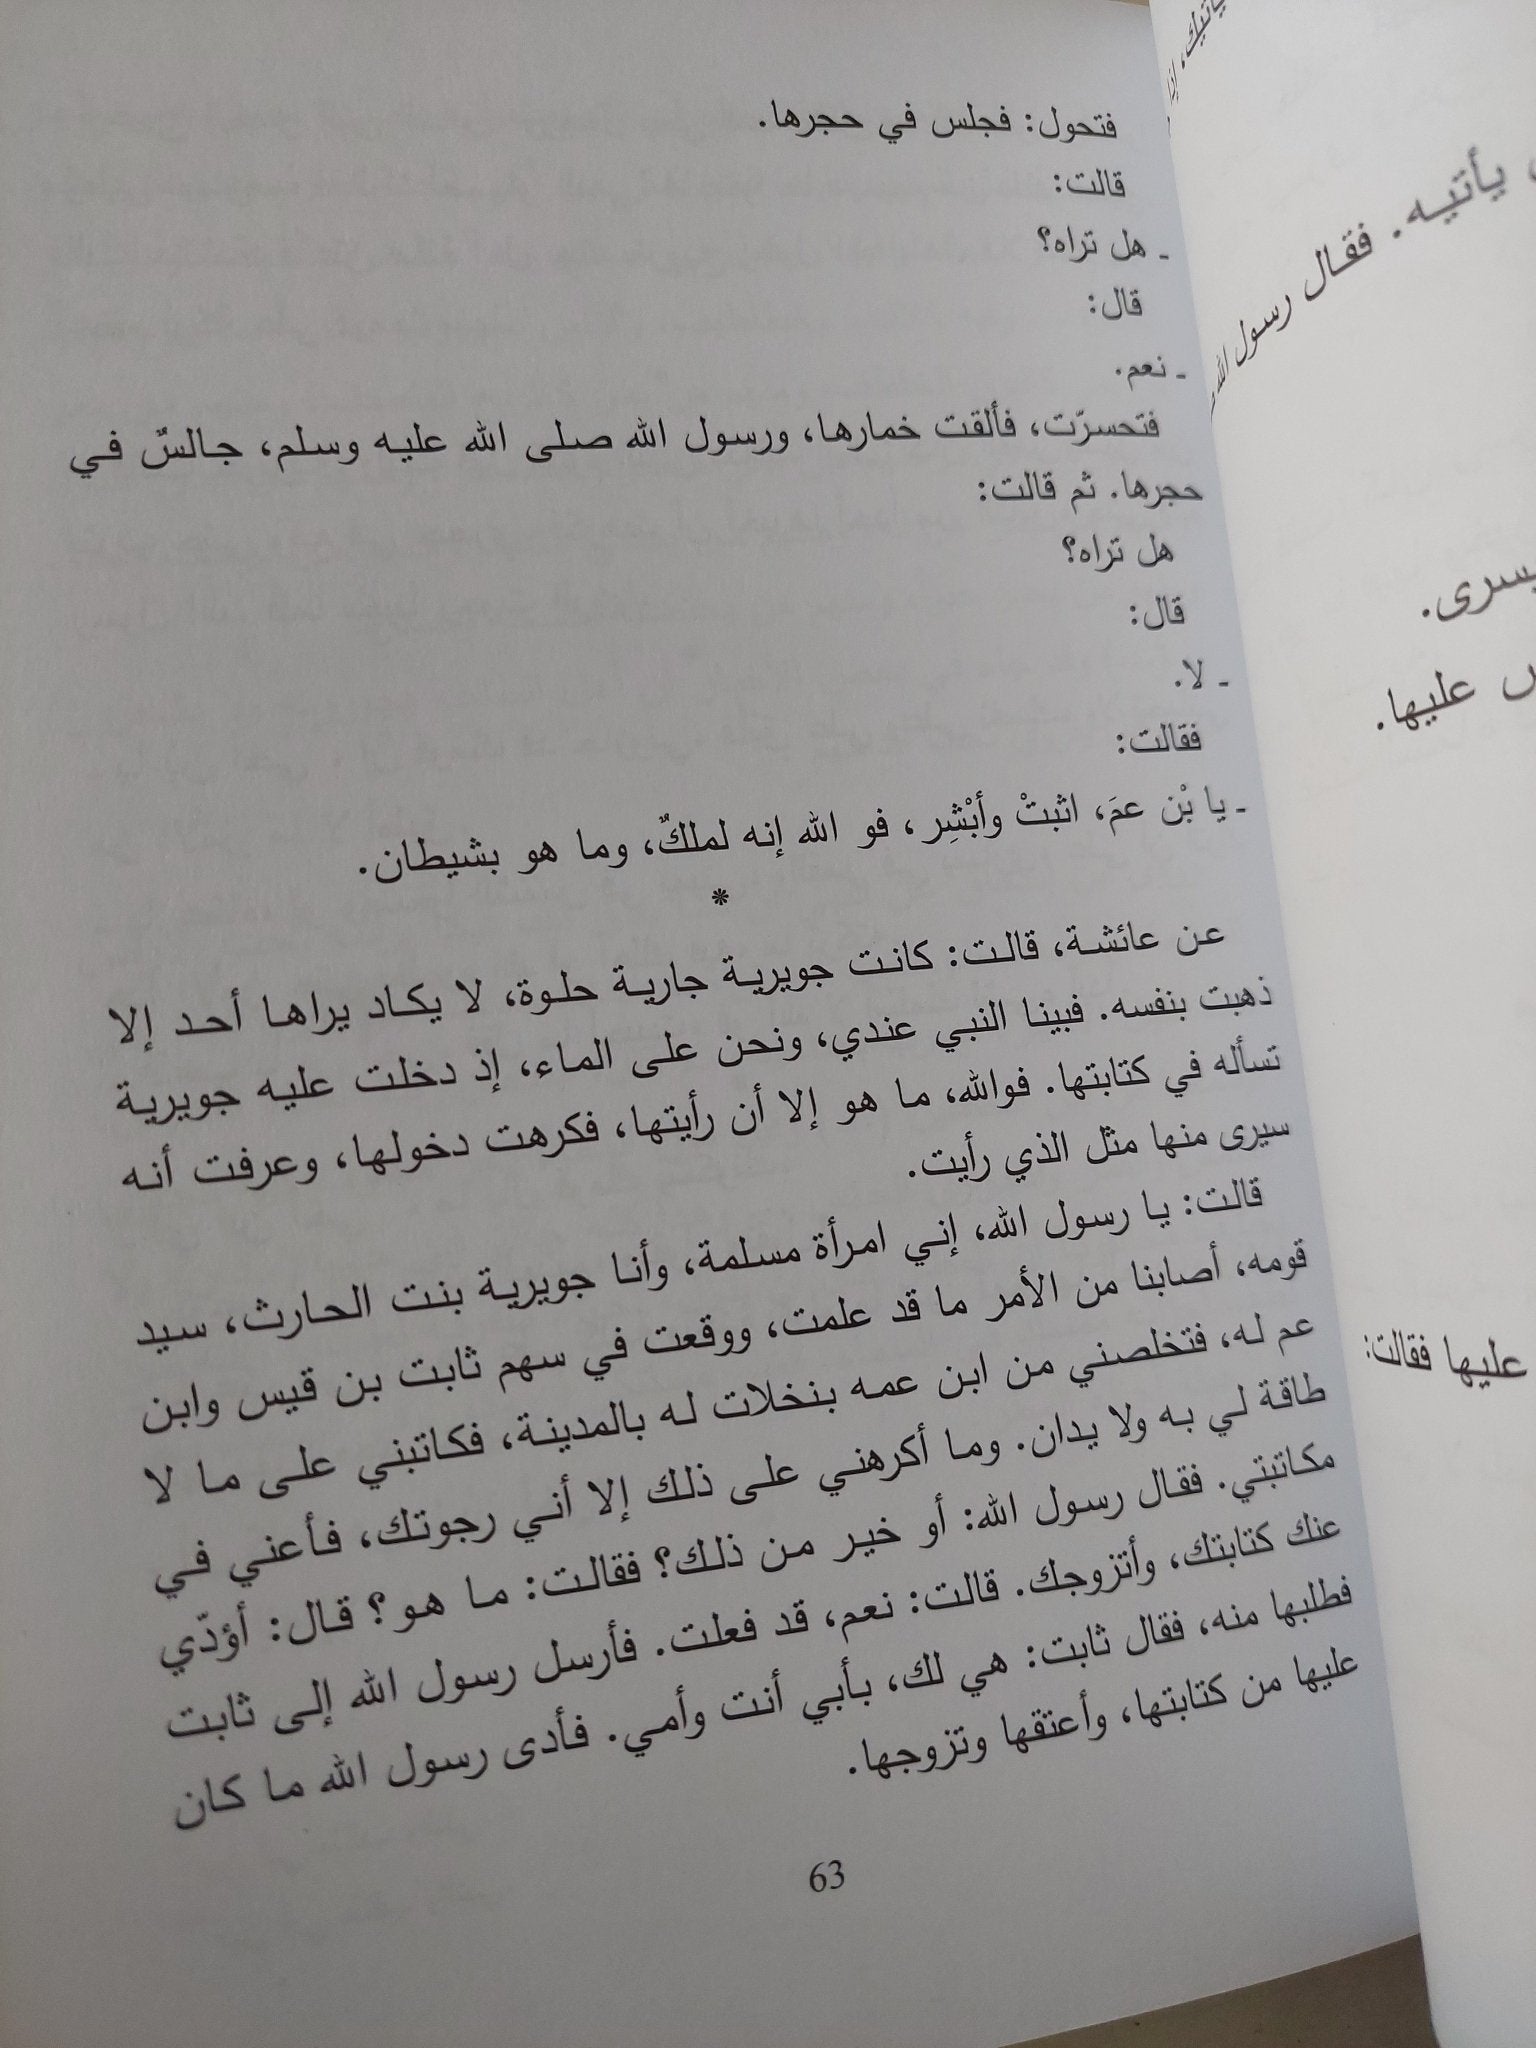 فتحول: فجلس في حجرها.
قالت:
ـ هل تراه؟
قال:
ـ نعم.
فتحسرّت، فألقت خمارها، ورسول الله صلى الله عليه وسلم، جالسٌ في
حجرها. ثم قالت:
هل تراه؟
قال:
ـ لا.
فقالت:
ـ يا بْن عمَ، اثبتْ وأبْشِر، فو الله إنه لملكٌ، وما هو بشيطان.
*
عن عائشة، قالت: كانت جويرية جارية حلوة، لا يكاد يراها أحد إلا
ذهبت بنفسه. فبينا النبي عندي، ونحن على الماء، إذ دخلت عليه جويرية
تسأله في كتابتها. فوالله، ما هو إلا أن رأيتها، فكرهت دخولها، وعرفت أنه
سيرى منها مثل الذي رأيت.
قالت: يا رسول الله، إني امرأة مسلمة، وأنا جويرية بنت الحارث، سيد
قومه، أصابنا من الأمر ما قد علمت، ووقعت في سهم ثابت بن قيس وابن
عم له، فتخلصني من ابن عمه بنخلات له بالمدينة، فكاتبني على ما لا
طاقة لي به ولا يدان. وما أكرهني على ذلك إلا أني رجوتك، فأعني في
مكاتبتي. فقال رسول الله: أو خير من ذلك؟ فقالت: ما هو؟ قال: أؤدّي
عنك كتابتك، وأتزوجك. قالت: نعم، قد فعلت. فأرسل رسول الله إلى ثابت
فطلبها منه، فقال ثابت: هي لك، بأبي أنت وأمي. فأدى رسول الله ما كان
عليها من كتابتها، وأعتقها وتزوجها.
63
يأتيك، إذا
يأتيه. فقال رسول الله
عليها.
عليها فقالت: